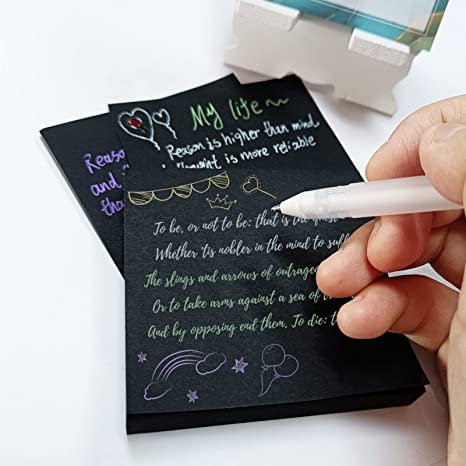 My life
Reason is higher than mind
is more reliable
Reason
and
tha
To be, or not to be: that is the
Whether 'tis nobler in the mind to
The slings and arrows of
Or to take arms against a sea of
And by opposing end them. To die: